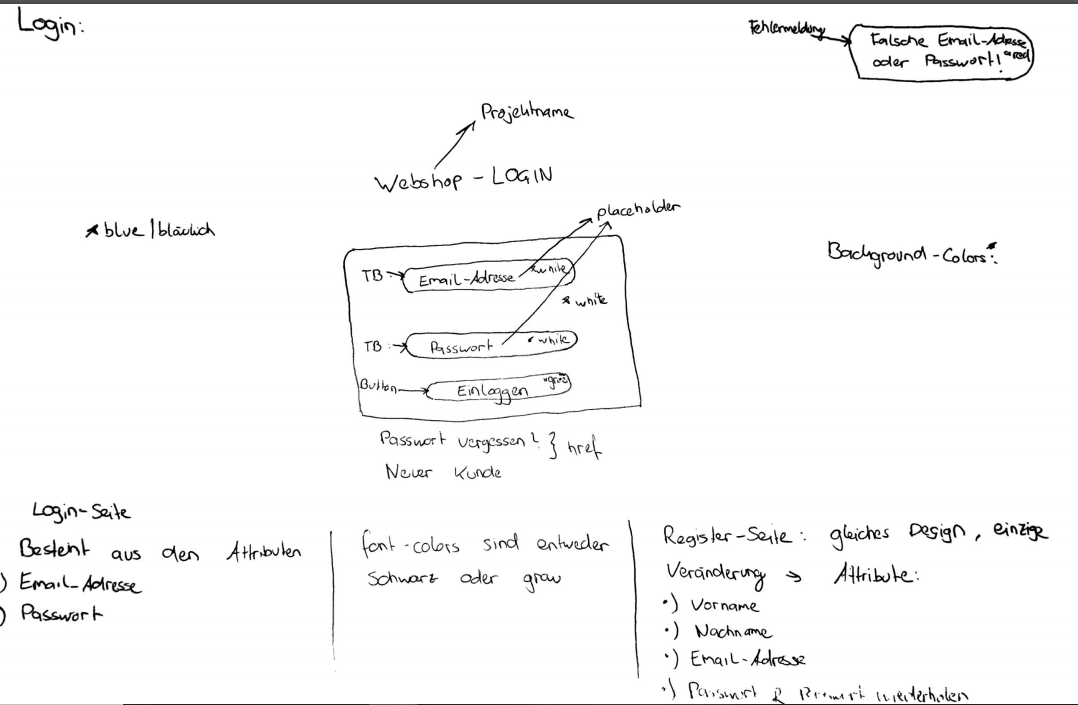 Login:
Fehlermeldung
Falsche Email-Adresse
oder Passwort! *red
Projektname
Webshop - LOGIN
placeholder
* blue | bläulich
Background-Colors*:
TB Email-Adresse *white
* white
TB Passwort * white
Button Einloggen *grau
Passwort vergessen? } href
Neuer Kunde
Login-Seite
Besteht aus den Attributen
) Email-Adresse
) Passwort
font-colors sind entweder
schwarz oder grau
Register-Seite: gleiches Design, einzige
Veränderung → Attribute:
•) Vorname
•) Nachname
•) Email-Adresse
•) Passwort & Passwort wiederholen